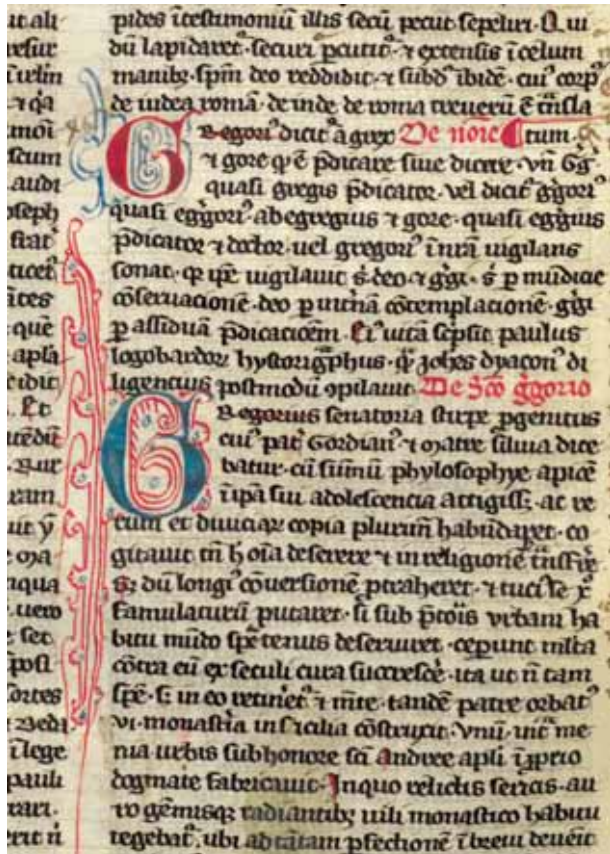 ut ali
resur
⁊ q̄a
moī
scum
audi
oseph
quē
aplā
Et
ram
uit ẏ
nqua
uero
set
post
ī lege
pauli
rari·
erit n̄
pides ī testimoniū illis secū pecut sepeliri· Qui
dū lapidaret᷑· securi ꝑcutit᷑· ⁊ extensis ī celum
manibꝫ· spm̄ deo reddidit· ⁊ sub dꝰ ibidē· cuiꝰ corpꝰ
de iudea romā· de inde de roma treuerū ē trāsla
Gregoriꝰ dicit᷑ a grex De noīe ¶ tum·
⁊ gore qꝰ ē p̄dicare siue dicere· vn̄ G̊gꝰ
quasi gregis p̄dicator· vel dicit᷑ g̊goriꝰ
quasi egg̊oriꝰ· ab egregius ⁊ gore· quasi egg̊ius
p̄dicator ⁊ doctor· uel gregoriꝰ ī nrā uigilans
sonat· qꝛ ip̄e uigilauit s̄· deo ⁊ g̊gi· s̄ ꝑ mūdicie
cōseruacionē· deo ꝑ intīnā cōtemplacionē· g̊gi
ꝑ assiduā p̄dicacioēm· Eiꝰ uitā sc̄psit paulus
logobardoꝝ hystorig̊phus· qꝰ̄ Johēs dyaconꝰ di
ligencius postmodū ꝯpilauit· De Sc̄o g̊gorio
Gregorius senatoria stirpe ꝓgenitus
cuiꝰ pat᷑ Gordianꝰ ⁊ mater siluia dice
batur· cū sūmū phylosophye apicē
ī ip̄a sui adolescencia attigissꝫ· ac re
rum et diuiciaꝝ copia plurim̄ habūdaret· co
gitauit tn̄ h̄ oīa deserere ⁊ in religionē trāsf͛re
sꝫ dū longiꝰ cōuersionē ꝓtraheret· ⁊ tuciꝰ se xꝰ̄
famulaturū putaret· si sub p̄toīs vrbani ha
bitu mūdo spē tenus deseruiret· cepunt ml̄ta
cōtra eū ex seculi cura succrescē͛· ita ut n̄ tam
spē· sꝫ in eo retinet᷑ ⁊ mīte· tandē patre orbatꝰ
vi· monast͛ia in sicilia cōstruxit· vnū· int᷑ me
nia urbis sub honore sc̄i andree apli ī ꝓprio
dogmate fabricauit· In quo relictis sericis· au
ro gēmisqꝫ radiantibꝫ uili monastico habitu
tegebat᷑· ubi ad tātam ꝑfectionē ī breui deuēit